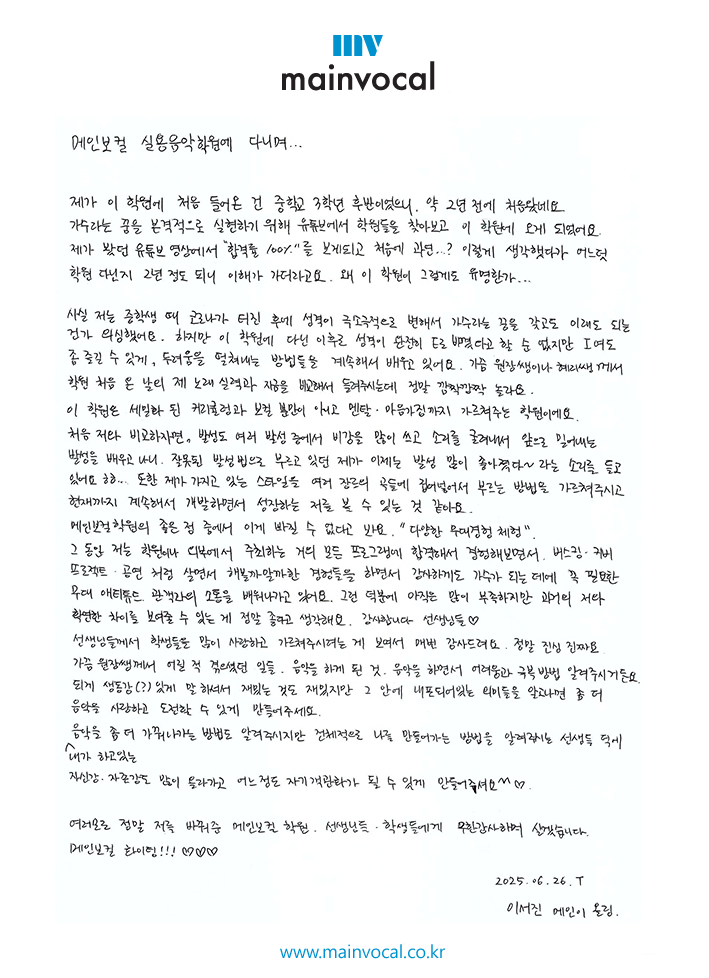 mv
mainvocal
메인보컬 실용음악학원에 다니며...
제가 이 학원에 처음 들어온 건 중학교 3학년 후반이었으니, 약 2년 전에 처음왔네요.
가수라는 꿈을 본격적으로 실현하기 위해 유튜브에서 학원들을 찾아보고 이 학원에 오게 되었어요.
제가 봤던 유튜브 영상에서 "합격률 100%"를 보게되고 처음에 과연...? 이렇게 생각했다가 어느덧
학원 다닌지 2년 정도 되니 이해가 가더라고요. 왜 이 학원이 그렇게도 유명한가...
사실 저는 중학생 때 코로나가 터진 후에 성격이 극소극적으로 변해서 가수라는 꿈을 갖고도 이래도 되는
건가 의심했어요. 하지만 이 학원에 다닌 이후로 성격이 완전히 E로 바꼈다고 할 순 없지만 I여도
좀 즐길 수 있게, 두려움을 떨쳐내는 방법들을 계속해서 배우고 있어요. 가끔 원장쌤이나 혜리쌤께서
학원 처음 온 날의 제 노래 실력과 지금을 비교해서 들려주시는데 정말 깜짝깜짝 놀라요.
이 학원은 세밀화 된 커리큘럼과 보컬 뿐만이 아니고 멘탈·마음가짐까지 가르쳐주는 학원이에요.
처음 저와 비교하자면, 발성도 여러 발성 중에서 비강을 많이 쓰고 소리를 굴려내서 앞으로 밀어내는
발성을 배우고 나니, 잘못된 발성법으로 부르고 있던 제가 이제는 발성 많이 좋아졌다~ 라는 소리를 듣고
있어요 ㅎㅎ.. 또한 제가 가지고 있는 스타일을 여러 장르의 곡들에 집어넣어서 부르는 방법을 가르쳐주시고
현재까지 계속해서 개발하면서 성장하는 저를 볼 수 있는 것 같아요.
메인보컬학원의 좋은 점 중에서 이게 빠질 수 없다고 봐요. "다양한 무대경험 체험".
그 동안 저는 학원이나 외부에서 주최하는 거의 모든 프로그램에 합격해서 경험해보면서, 버스킹·커버
프로젝트·공연 처럼 살면서 해볼까말까한 경험들을 하면서 감사하게도 가수가 되는 데에 꼭 필요한
무대 애티튜드, 관객과의 소통을 배워나가고 있어요. 그런 덕분에 아직은 많이 부족하지만 과거의 저와
확연한 차이를 보여줄 수 있는 게 정말 좋다고 생각해요. 감사합니다 선생님들♡
선생님들께서 학생들을 많이 사랑하고 가르쳐주시려는 게 보여서 매번 감사드려요. 정말 진심 진짜요.
가끔 원장쌤께서 어릴 적 겪으셨던 일들. 음악을 하게 된 것. 음악을 하면서 어려움과 극복 방법 알려주시거든요.
되게 생동감(?)있게 말하셔서 재밌는 것도 재밌지만 그 안에 내포되어있는 의미들을 알고나면 좀 더
음악을 사랑하고 도전할 수 있게 만들어주세요.
음악을 좀 더 가꿔나가는 방법도 알려주시지만 전체적으로 나를 만들어가는 방법을 알려주시는 선생들 덕에
내가 하고있는
자신감·자존감도 많이 올라가고 어느정도 자기객관화가 될 수 있게 만들어주셔요^^♡.
여러모로 정말 저를 바꿔준 메인보컬 학원. 선생님들·학생들에게 무한감사하며 살겠습니다.
메인보컬 화이팅!!! ♡♡♡
2025.06.26.T
이서진 메인이 올림.
www.mainvocal.co.kr